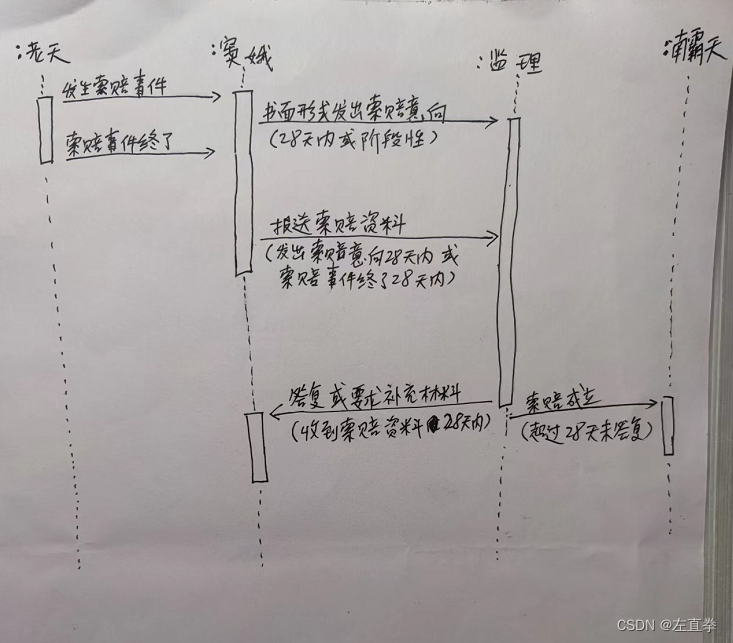 :老天
:窦娥
:监理
:南霸天
发生索赔事件
索赔事件终了
书面形式发出索赔意向
(28天内或阶段性)
报送索赔资料
(发出索赔意向28天内 或
索赔事件终了28天内)
答复或要求补充材料
(收到索赔资料 28天内)
索赔成立
(超过28天未答复)
CSDN @左直拳